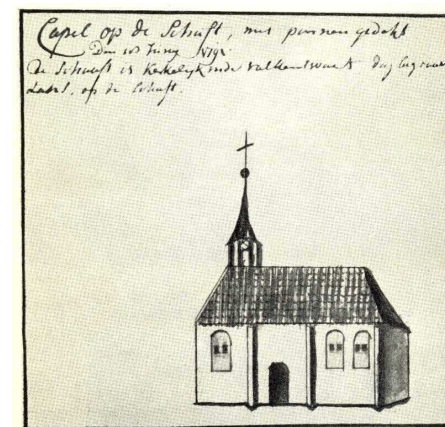 Capel op de Schuft, met pannen gedekt
Den 10 Juny 1791.
De Schaeft is Kerkelijk onder Valkenswaert
Capel, op de Schuft.